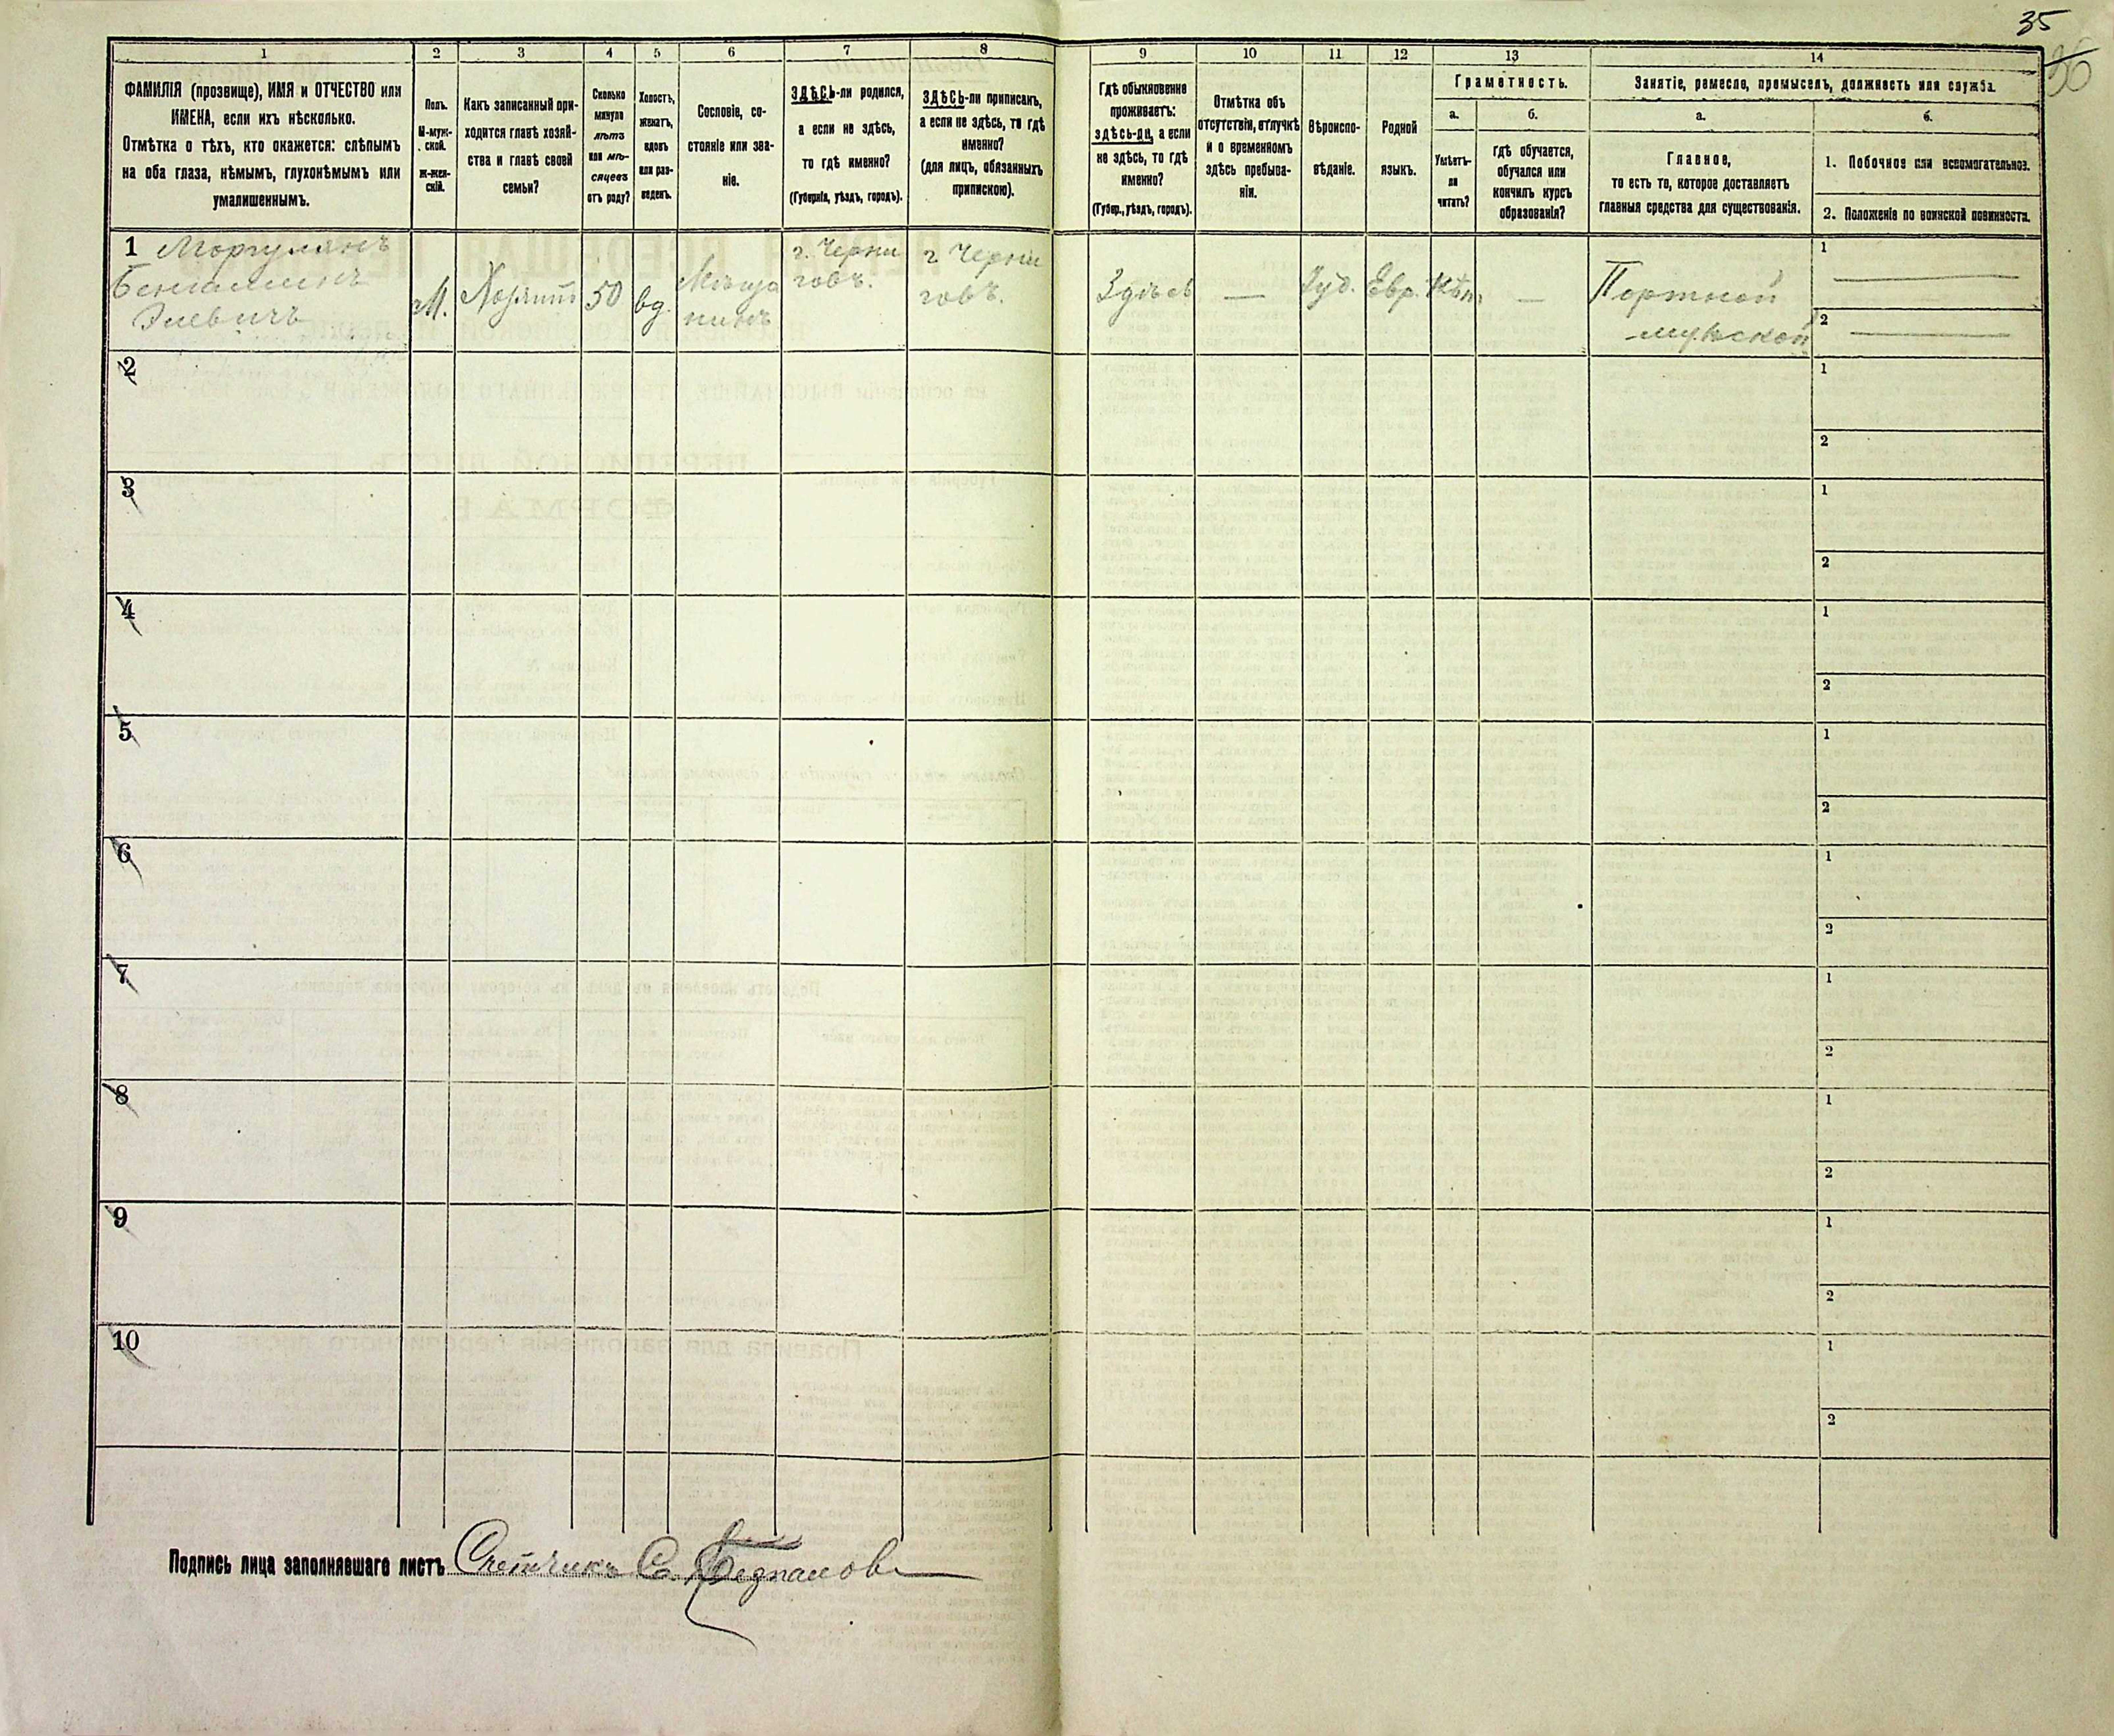 35
36
1
2
3
4
5
6
7
8
9
10
11
12
13
14
ФАМИЛІЯ (прозвище), ИМЯ и ОТЧЕСТВО или
ИМЕНА, если ихъ нѣсколько.
Отмѣтка о тѣхъ, кто окажется: слѣпымъ
на оба глаза, нѣмымъ, глухонѣмымъ или
умалишеннымъ.
Полъ.
М-муж-
ской.
ж-жен-
скій.
Какъ записанный при-
ходится главѣ хозяй-
ства и главѣ своей
семьи?
Сколько
минуло
лѣтъ
или мѣ-
сяцевъ
отъ роду?
Холостъ,
женатъ,
вдовъ
или раз-
веденъ.
Сословіе, со-
стояніе или зва-
ніе.
ЗДѢСЬ-ли родился,
а если не здѣсь,
то гдѣ именно?
(Губернія, уѣздъ, городъ).
ЗДѢСЬ-ли приписанъ,
а если не здѣсь, то гдѣ
именно?
(для лицъ, обязанныхъ
припискою).
Гдѣ обыкновенно
проживаетъ:
здѣсь-ли, а если
не здѣсь, то гдѣ
именно?
(Губер., уѣздъ, городъ).
Отмѣтка объ
отсутствіи, отлучкѣ
и о временномъ
здѣсь пребыва-
ніи.
Вѣроиспо-
вѣданіе.
Родной
языкъ.
Грамотность.
а.
Умѣетъ-
ли
читать?
б.
Гдѣ обучается,
обучался или
кончилъ курсъ
образованія?
Занятіе, ремесло, промыселъ, должность или служба.
а.
Главное,
то есть то, которое доставляетъ
главныя средства для существованія.
б.
1. Побочное или вспомогательное.
2. Положеніе по воинской повинности.
1 Моргулянъ
Беньаминъ
Элевичъ
М.
Хозяинъ
50
вд.
Мѣща
нинъ
г. Черни
говъ.
г Черни
говъ.
Здѣсь
—
Іуд.
Евр.
Нѣтъ
—
Портной
мужской
1 —
2 —
2
1
2
3
1
2
4
1
2
5
1
2
6
1
2
7
1
2
8
1
2
9
1
2
10
1
2
Подпись лица заполнявшаго листъ Счетчикъ С.